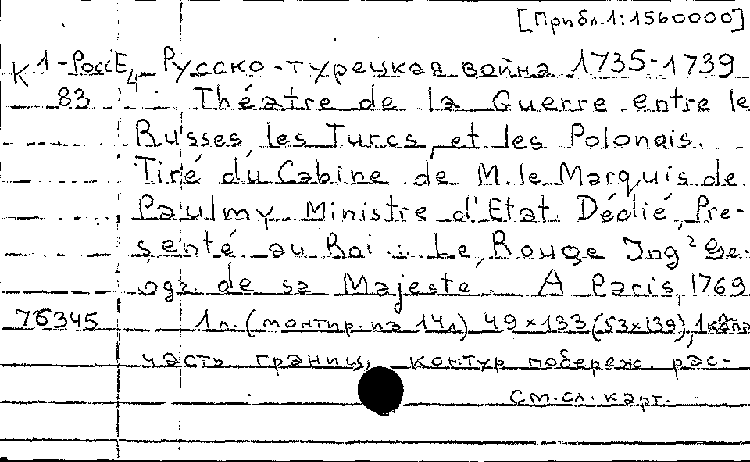 [Прибл. 1:1560000]
К 1-РоссЕ4 Русско-турецкая война 1735-1739
83 Théatre de la Guerre entre le
Russes, les Turcs, et les Polonais.
Tiré du Cabine de M. le Marquis de
Paulmy Ministre d'Etat Dédié, Pre-
senté au Roi : Le Rouge Ing² Ge-
ogr. de sa Majeste. A Paris, 1769
76345 1 л. (монтир. из 14л) 49×133 (53×139), 1 карта
часть границ, контур побереж. рас-
см. сл. карт.